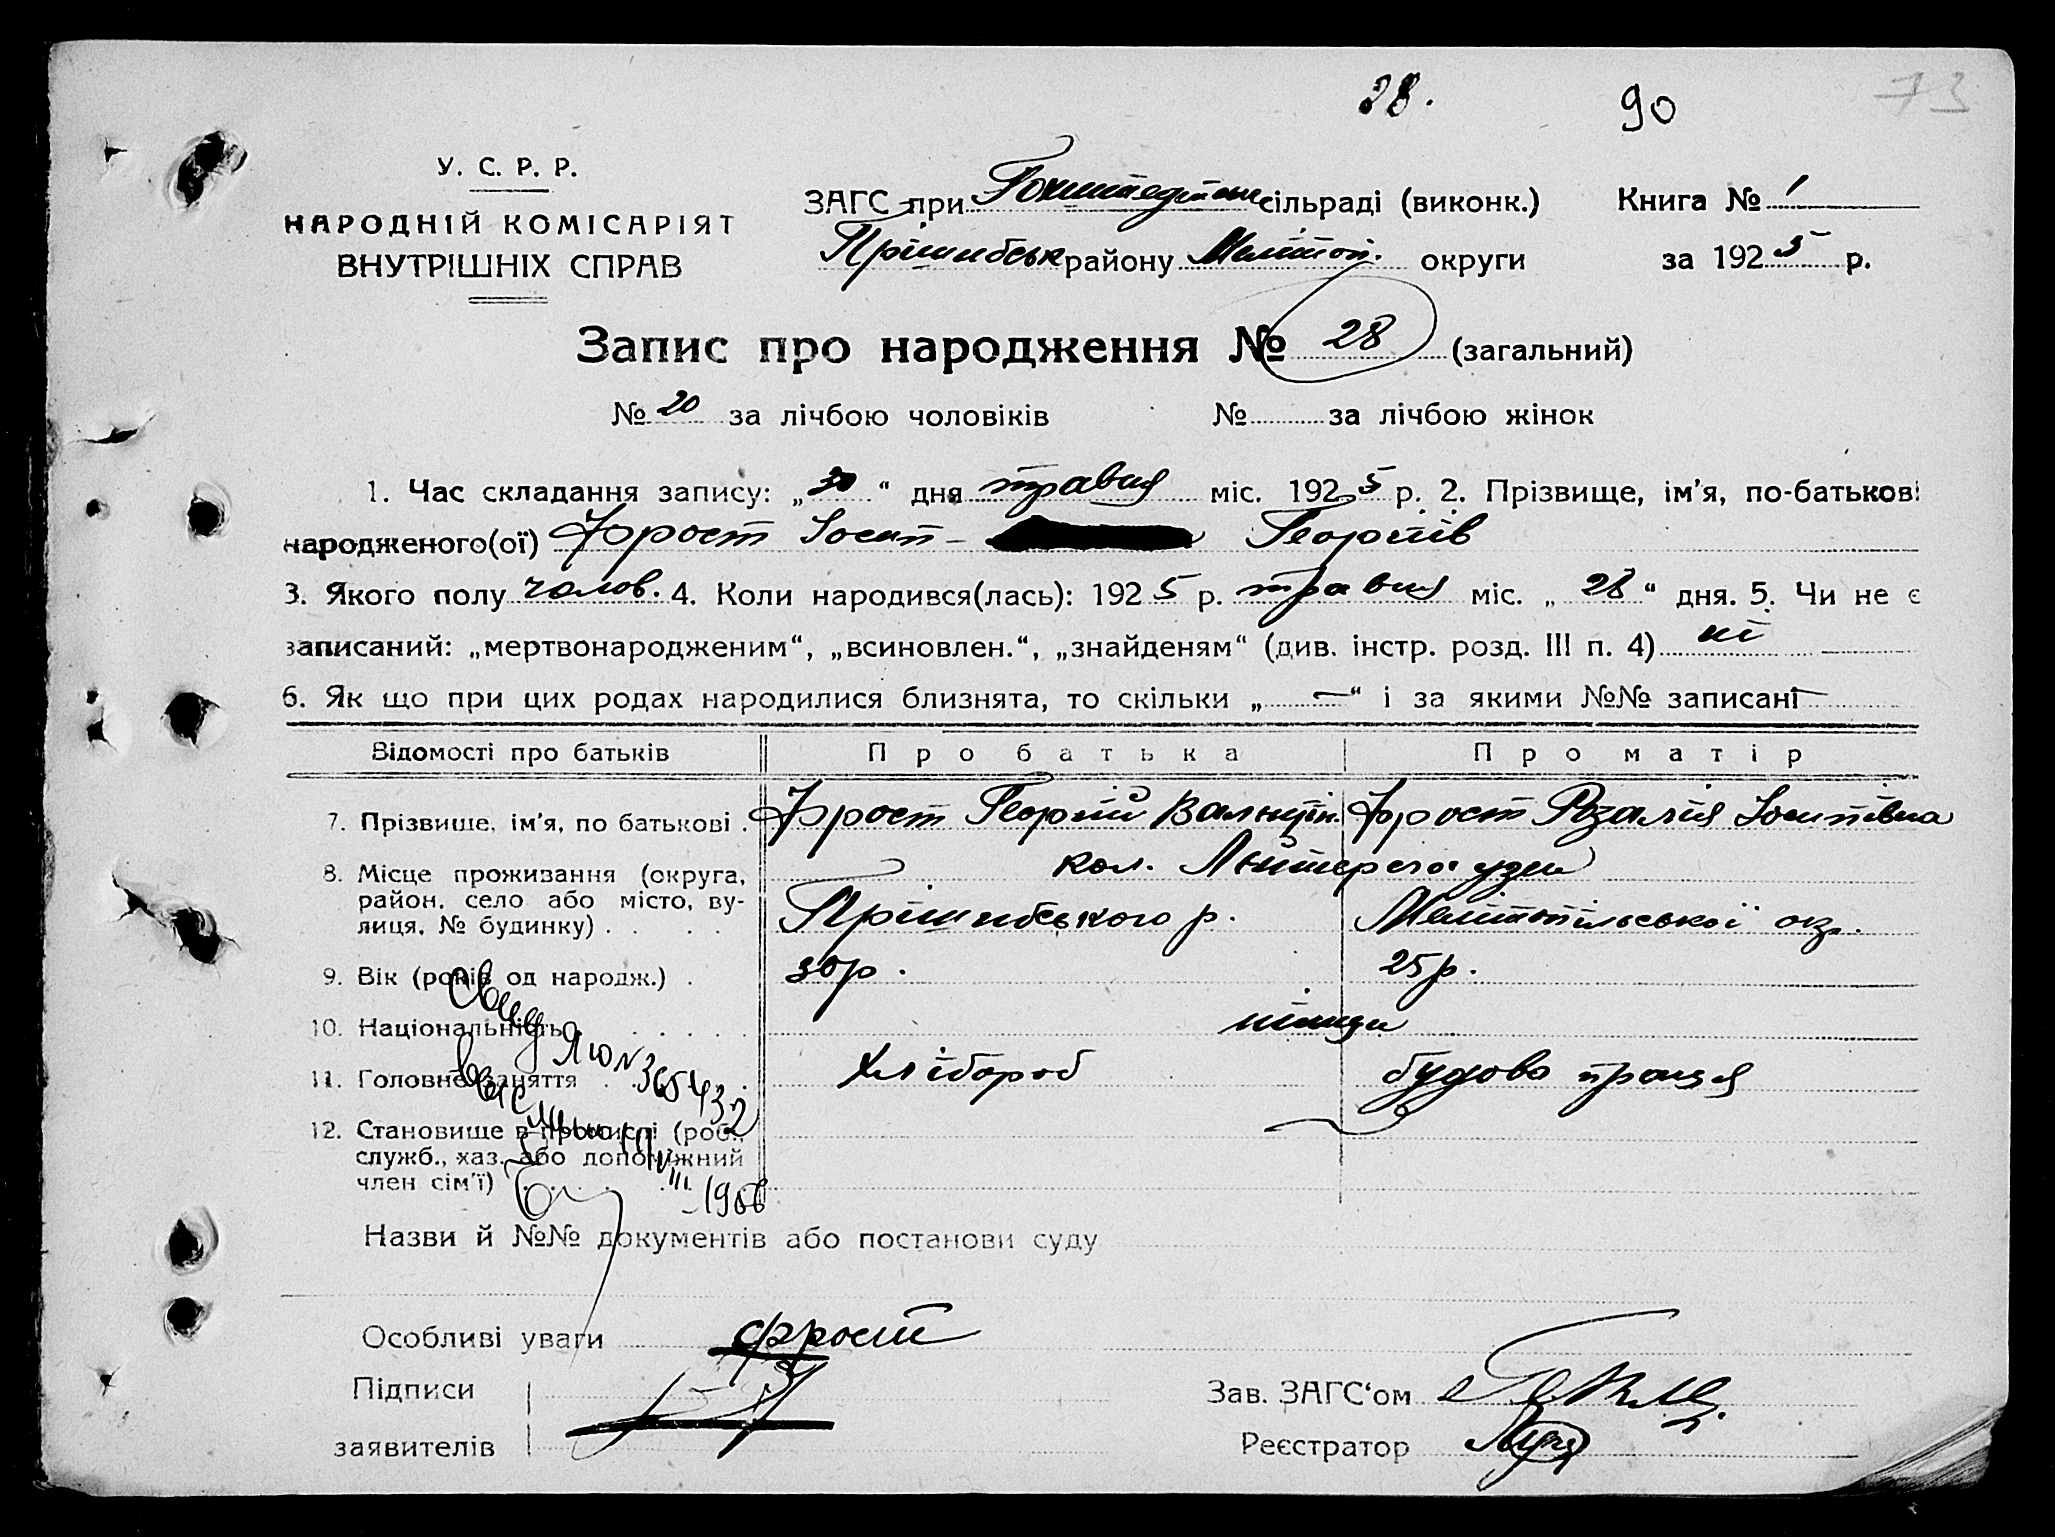 28. 90 73
У. С. Р. Р.
НАРОДНІЙ КОМІСАРІЯТ
ВНУТРІШНІХ СПРАВ
ЗАГС при Гохштедтськ сільраді (виконк.) Книга № 1
Прішибськ району Мелітоп. округи за 1925 р.
Запис про народження № 28 (загальний)
№ 20 за лічбою чоловіків № за лічбою жінок
1. Час складання запису: „30“ дня травня міс. 1925 р. 2. Прізвище, ім’я, по-батькові
народженого(ої) Фрост Іосип - Георгіїв
3. Якого полу чолов. 4. Коли народився(лась): 1925 р. травня міс. „28“ дня. 5. Чи не є
записаний: „мертвонародженим“, „всиновлен.“, „знайденям“ (див. інстр. розд. III п. 4) ні
6. Як що при цих родах народилися близнята, то скільки „—“ і за якими №№ записані —
Відомості про батьків Про батька Про матір
7. Прізвище, ім’я, по батькові . Фрост Георгій Валентін. Фрост Розалія Іосипівна
8. Місце проживання (округа, район, село або місто, вулиця, № будинку) . . . . кол.
Прішибського р. Мелітопільської ок.
9. Вік (років од народж.) . 30 р. 25 р.
10. Національність . . . . . німці
11. Головне заняття . . . . Хлібороб будово праця
12. Становище в промислі (роб.,
служб., хаз. або допоміжний
член сім’ї) . . . .
ЯЮ № 365432
III 1956
Назви й №№ документів або постанови суду
Особливі уваги Фрост
Підписи
заявителів
Зав. ЗАГС‘ом
Реєстратор